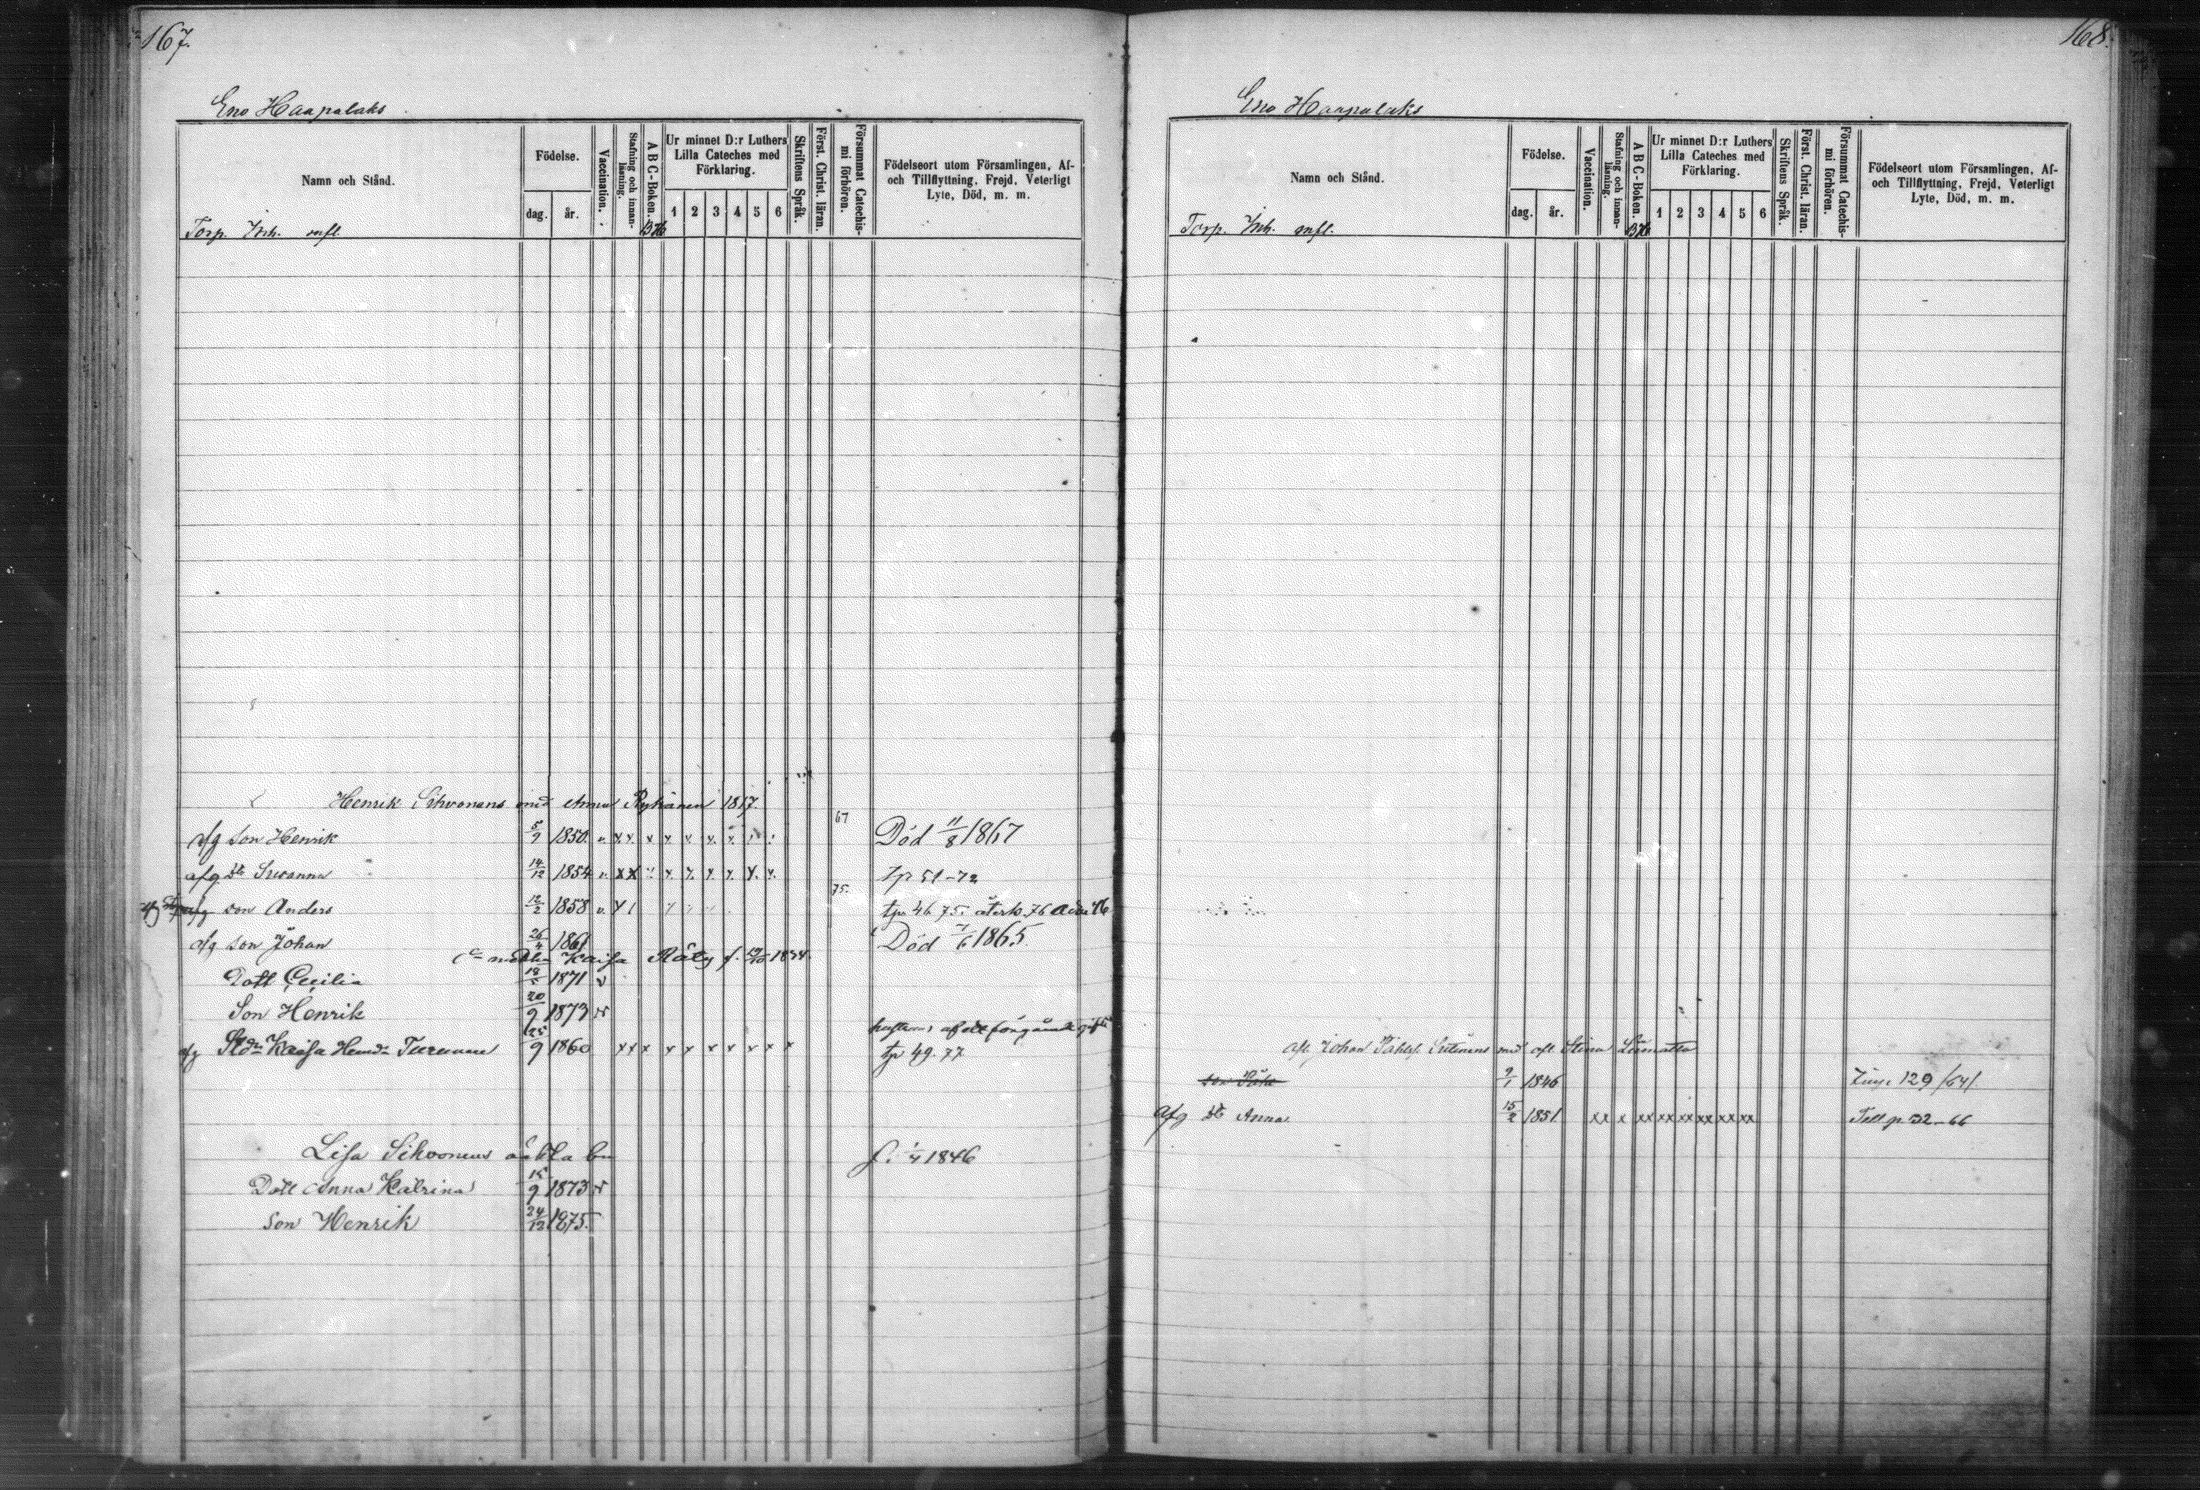 167.
Eno Haapalaks
Namn och Stånd.
Födelse.
dag.
år.
Vaccination.
Stafning och innan-
läsning.
A B C-Boken.
Ur minnet D:r Luthers
Lilla Cateches med
Förklaring.
1 2 3 4 5 6
Skriftens Språk.
Först. Christ. läran.
Försummat Catechis-
mi förhören.
Födelseort utom Församlingen, Af-
och Tillflyttning, Frejd, Veterligt
Lyte, Död, m. m.
Torp. Inh. mfl.
Henrik Sihvonens med Anna Ryhänen 1817
67
afg son Henrik 5/9 1850. v. x x x x x x x Död 11/8 1867
afg dr Susanna 14/12 1854 v. x x x x x x x x x tp 51-72
75.
afg son Anders 12/2 1858 v. x tp. 46. 75. återk. 76
afg son Johan 26/4 1861 Död 6 1865.
Kaisa Räty f. 1834.
Dott Cecilia 18/5 1871 v
Son Henrik 20/9 1873 v
hustruns af det föregående
afg Kaisa Henr.dr Turunen 25/9 1860 x x x x x x x x x x tp 49. 77
Lisa Sihvonens f. 1846
Dott Anna Katrina 15/9 1873 v
Son Henrik 24/12 1875.
168.
Eno Haapalaks
Namn och Stånd.
Födelse.
dag.
år.
Vaccination.
Stafning och innan-
läsning.
A B C-Boken.
Ur minnet D:r Luthers
Lilla Cateches med
Förklaring.
1 2 3 4 5 6
Skriftens Språk.
Först. Christ. läran.
Försummat Catechis-
mi förhören.
Födelseort utom Församlingen, Af-
och Tillflyttning, Frejd, Veterligt
Lyte, Död, m. m.
Torp. Inh. mfl.
afl. Johan med afl. Stina
son 9/1 1846 129/64/.
afg dr Anna 15/2 1851. xx x xx xx xx xx xx xx Till p. 52-66